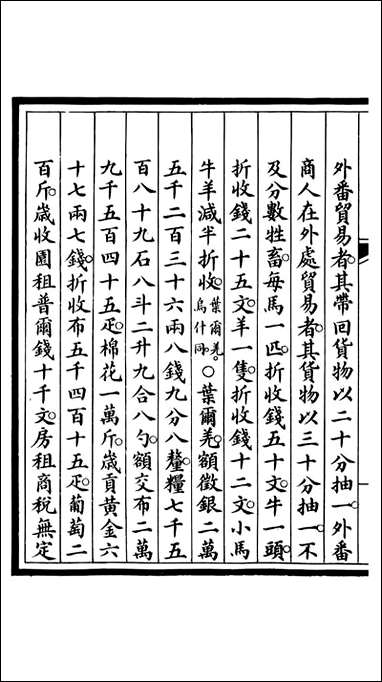 外番貿易者其帶回貨物以二十分抽一外番
商人在外處貿易者其貨物以三十分抽一不
及分數牲畜每馬一匹折收錢五十文牛一頭
折收錢二十五文羊一隻折收錢十二文小馬
牛羊減半折收葉爾羌烏什同。○葉爾羌額徵銀二萬
五千二百三十六兩八錢九分八釐糧七千五
百八十九石八斗二升九合八勺額交布二萬
九千五百四十五疋棉花一萬斤歲貢黃金六
十七兩七錢折收布五千四百十五疋葡萄二
百斤歲收園租普爾錢十千文房租商稅無定